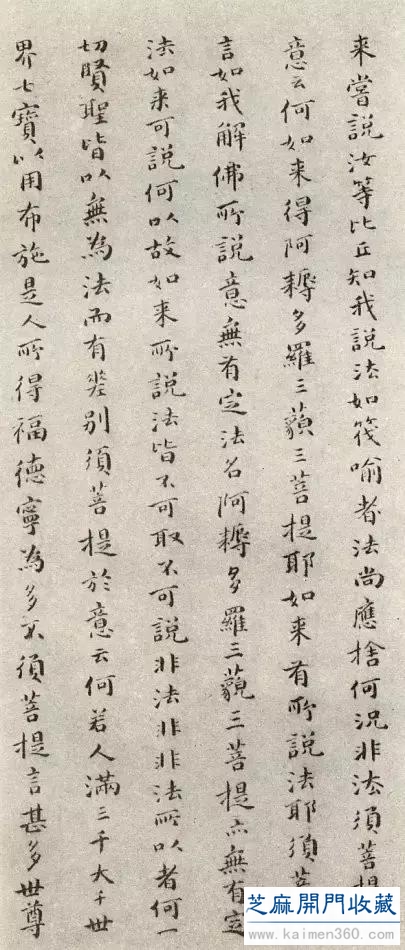 来嘗説汝等比丘知我説法如筏喻者法尚應捨何況非法須菩提
意云何如来得阿耨多羅三藐三菩提耶如来有所説法耶須菩
言如我解佛所説意無有定法名阿耨多羅三藐三菩提亦無有定
法如来可説何以故如来所説法皆不可取不可説非法非非法所以者何一
切賢聖皆以無為法而有差别須菩提於意云何若人滿三千大千世
界七寶以用布施是人所得福德寧為多不須菩提言甚多世尊
芝麻開門收藏
www.kaimen360.com